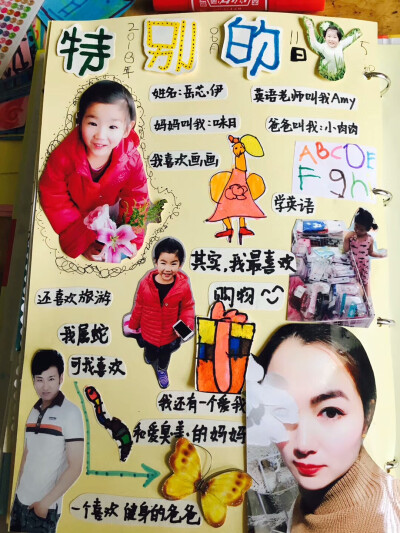 特别的我
2018年 月 11日
姓名:岳芯·伊
英语老师叫我Amy
妈妈叫我:味日
爸爸叫我:小肉肉
我喜欢画画
ABCDE
Fgh
学英语
其实,我最喜欢
购物
还喜欢旅游
我属蛇
可我喜欢
我还有一个爱我
和爱臭美·的妈妈
一个喜欢健身的爸爸